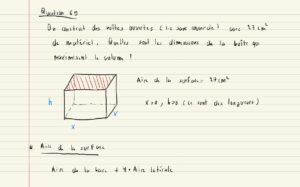 Question 69
On construit des boîtes ouvertes (i.e sans couvercle) avec 27 cm²
de matériel. Quelles sont les dimensions de la boîte qui
maximisent le volume ?
Aire de la surface = 27 cm²
x > 0, h > 0 (ce sont des longueurs)
h
x
x
Aire de la surface
Aire de la base + 4 · Aire latérale